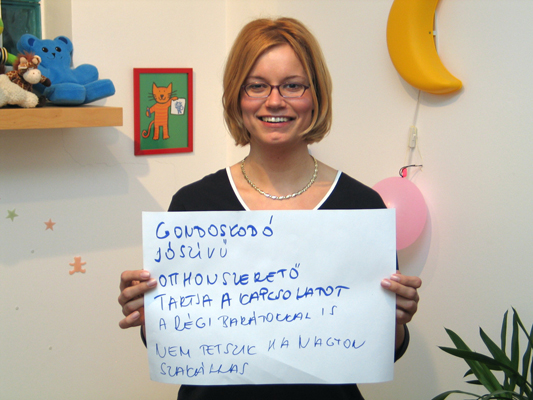 GONDOSKODÓ
JÓSZÍVŰ
OTTHONSZERETŐ
TARTJA A KAPCSOLATOT
A RÉGI BARÁTOKKAL IS
NEM TETSZIK HA NAGYON
SZAKÁLLAS